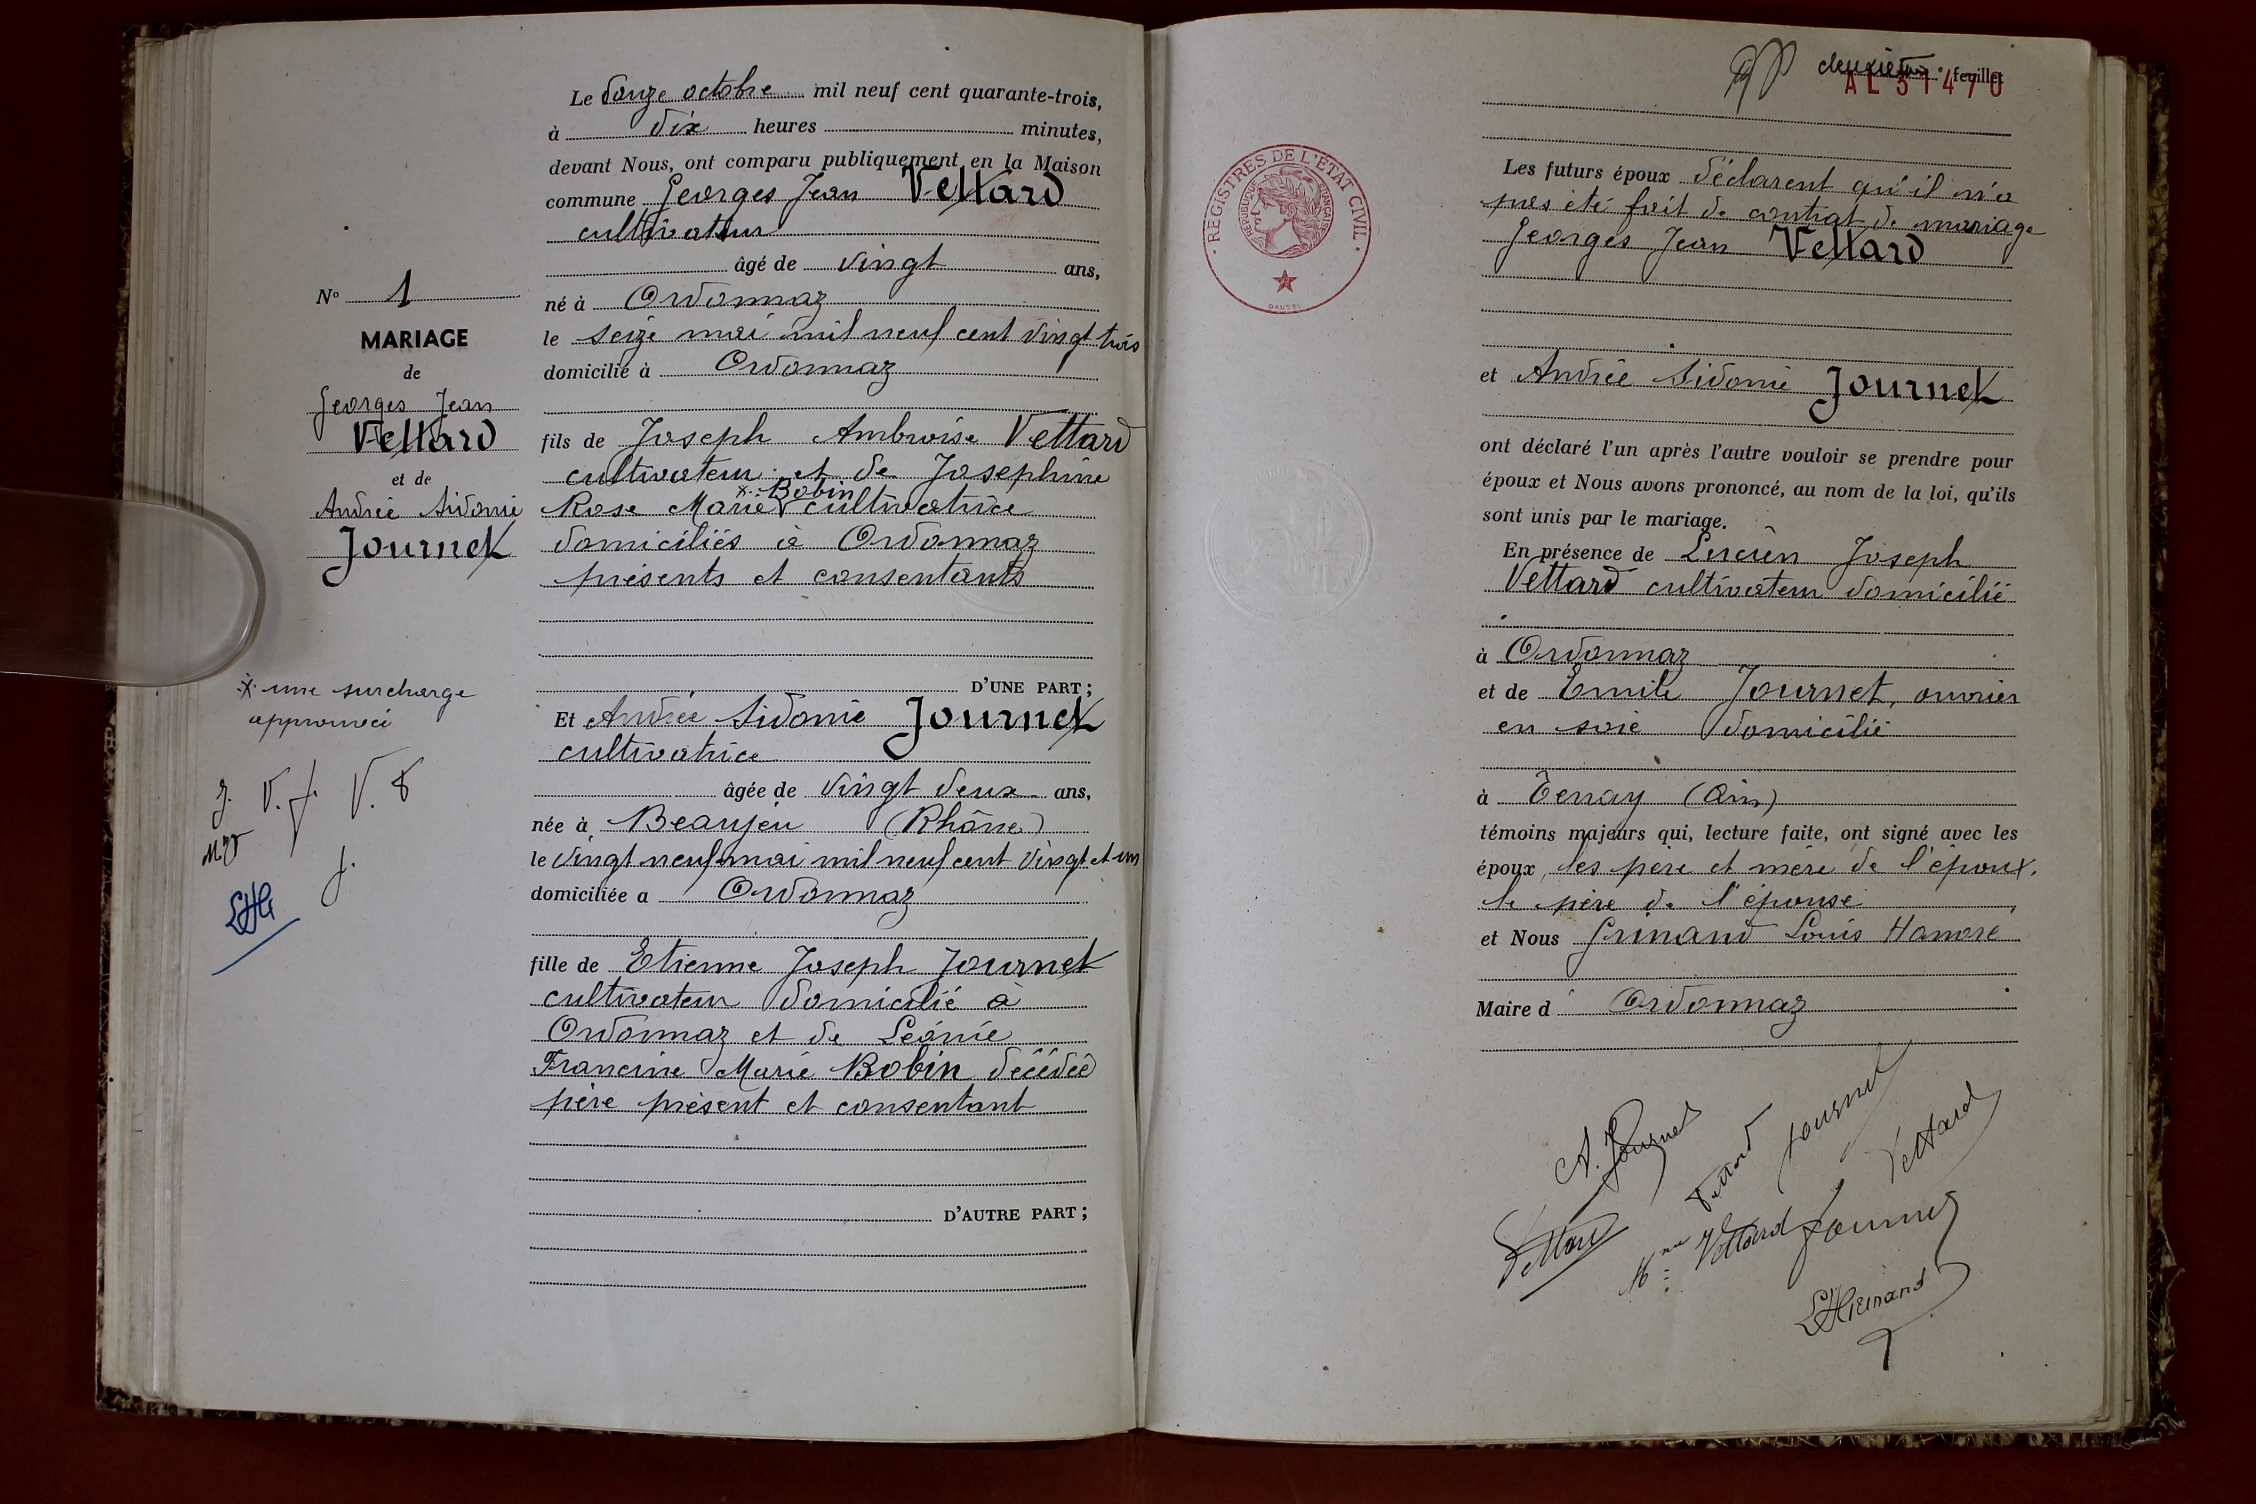 Le douze octobre mil neuf cent quarante-trois,
à dix heures minutes,
devant Nous, ont comparu publiquement en la Maison
commune Georges Jean Vettard
cultivateur
âgé de vingt ans,
né à Ordonnaz
le seize mai mil neuf cent vingt trois
domicilié à Ordonnaz
fils de Joseph Ambroise Vettard
cultivateur et de Josephine
Rose Marie x Bobin cultivatrice
domiciliés à Ordonnaz
présents et consentants
D'UNE PART ;
Et Andrée Sidonie Journet
cultivatrice
âgée de vingt deux ans,
née à Beaujeu (Rhône)
le vingt neuf mai mil neuf cent vingt et un
domiciliée a Ordonnaz
fille de Etienne Joseph Journet
cultivateur domicilié à
Ordonnaz et de Léonie
Francine Marie Bobin décédée
père présent et consentant
D'AUTRE PART ;
No 1
MARIAGE
de
Georges Jean
Vettard
et de
Andrée Sidonie
Journet
x une surcharge
approuvée
J. V. J. V.
J.
LHG
deuxième feuillet
AL 31470
REGISTRES DE L'ÉTAT CIVIL
RÉPUBLIQUE FRANÇAISE
Les futurs époux déclarent qu'il n'a
pas été fait de contrat de mariage
Georges Jean Vettard
et Andrée Sidonie Journet
ont déclaré l'un après l'autre vouloir se prendre pour
époux et Nous avons prononcé, au nom de la loi, qu'ils
sont unis par le mariage.
En présence de Lucien Joseph
Vettard cultivateur domicilié
à Ordonnaz
et de Emile Journet, ouvrier
en soie domicilié
à Tenay (Ain)
témoins majeurs qui, lecture faite, ont signé avec les
époux, les père et mère de l'époux,
le père de l'épouse
et Nous Grinand Louis Honoré
Maire d' Ordonnaz
A. Journet
Vettard
Journet
Vettard
Vettard
Mme Vettard
Journet
LHGrinand